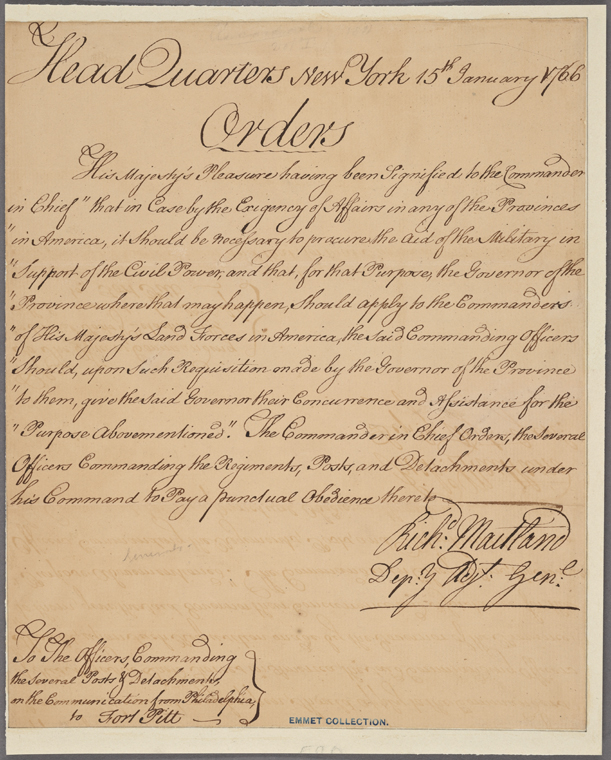 Head Quarters New York 15th January 1766
Orders
His Majesty's Pleasure having been Signified to the Commander
in Chief "that in Case by the Exigency of Affairs in any of the Provinces
"in America, it Should be necessary to procure the Aid of the Military in
"Support of the Civil Power, and that, for that Purpose, the Governor of the
"Province where that may happen, Should apply to the Commanders
"of His Majesty's Land Forces in America, the Said Commanding Officers
"Should, upon Such Requisition made by the Governor of the Province
"to them, give the Said Governor their Concurrence and Assistance for the
"Purpose Abovementioned". The Commander in Chief Orders, the Several
Officers Commanding the Regiments, Posts, and Detachments under
his Command to Pay a punctual Obedience thereto
Richd. Maitland
Dep:y Adjt. Genl.
To The Officers Commanding
the Several Posts & Detachments
on the Communication from Philadelphia,
to Fort Pitt
EMMET COLLECTION.